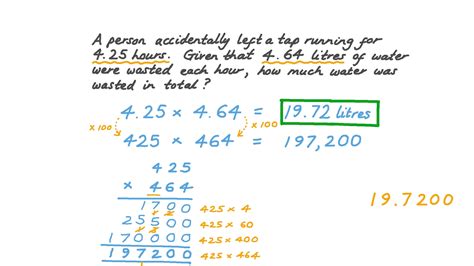 A person accidentally left a tap running for
4.25 hours. Given that 4.64 litres of water
were wasted each hour, how much water was
wasted in total?
4.25 × 4.64 = 19.72 litres
×100 ×100
425 × 464 = 197,200
425
× 464
1700 425 × 4
25500 425 × 60
170000 425 × 400
197200 425 × 464
19.7200